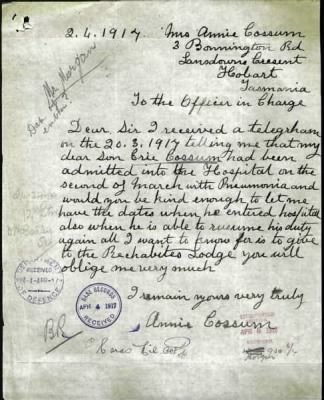 2.4.1917. Mrs Annie Cossum
3 Bonnington Rd
Lansdowne Cresent
Hobart
Tasmania
To the Officer in Charge
Dear Sir I received a telegrham
on the 20.3.1917 telling me that my
dear Son Eric Cossum had been
admitted into the Hospital on the
second of March with Pneumonia and
would you be kind enough to let me
have the dates when he entered hospital
also when he is able to resume his duty
again all I want to know for is to give
to the Rechabites Lodge you will
oblige me very much
I remain yours very truly
Annie Cossum
BASE RECORDS
APR 4 1917
RECEIVED
DEFENCE
B.R.